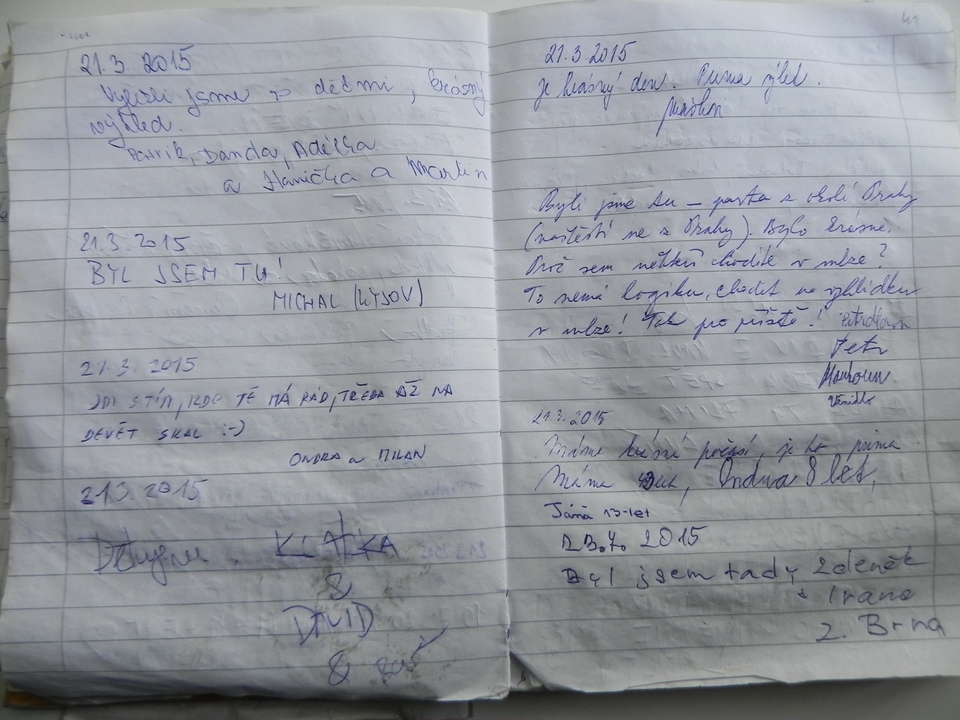 21.3 2015
Vylezli jsme s dětmi, krásný
výhled.
Patrik, Danda, Adélka
a Hanička a Martin
21.3.2015
BYL JSEM TU!
MICHAL (LYSOV)
21.3.2015
JDI S TÍM, KDO TĚ MÁ RÁD, TŘEBA AŽ NA
DEVĚT SKAL :-)
ONDRA a MILAN
21.3.2015
KLAĽKA
&
DAVID
&
41
21.3.2015
Je krásný den. Prima výlet.
Byli jsme tu – parta z okolí Prahy
(naštěstí ne z Prahy). Bylo krásně.
Proč sem někteří chodíte v mlze?
To nemá logiku, chodit na vyhlídku
v mlze! Tak po příště!
Petr
21.3.2015
Máme krásné počasí, je to prima
Máme Ondra 8 let,
Jána 13-let
23.7. 2015
Byl jsem tady Zdeněk
+ Irano
z. Brna